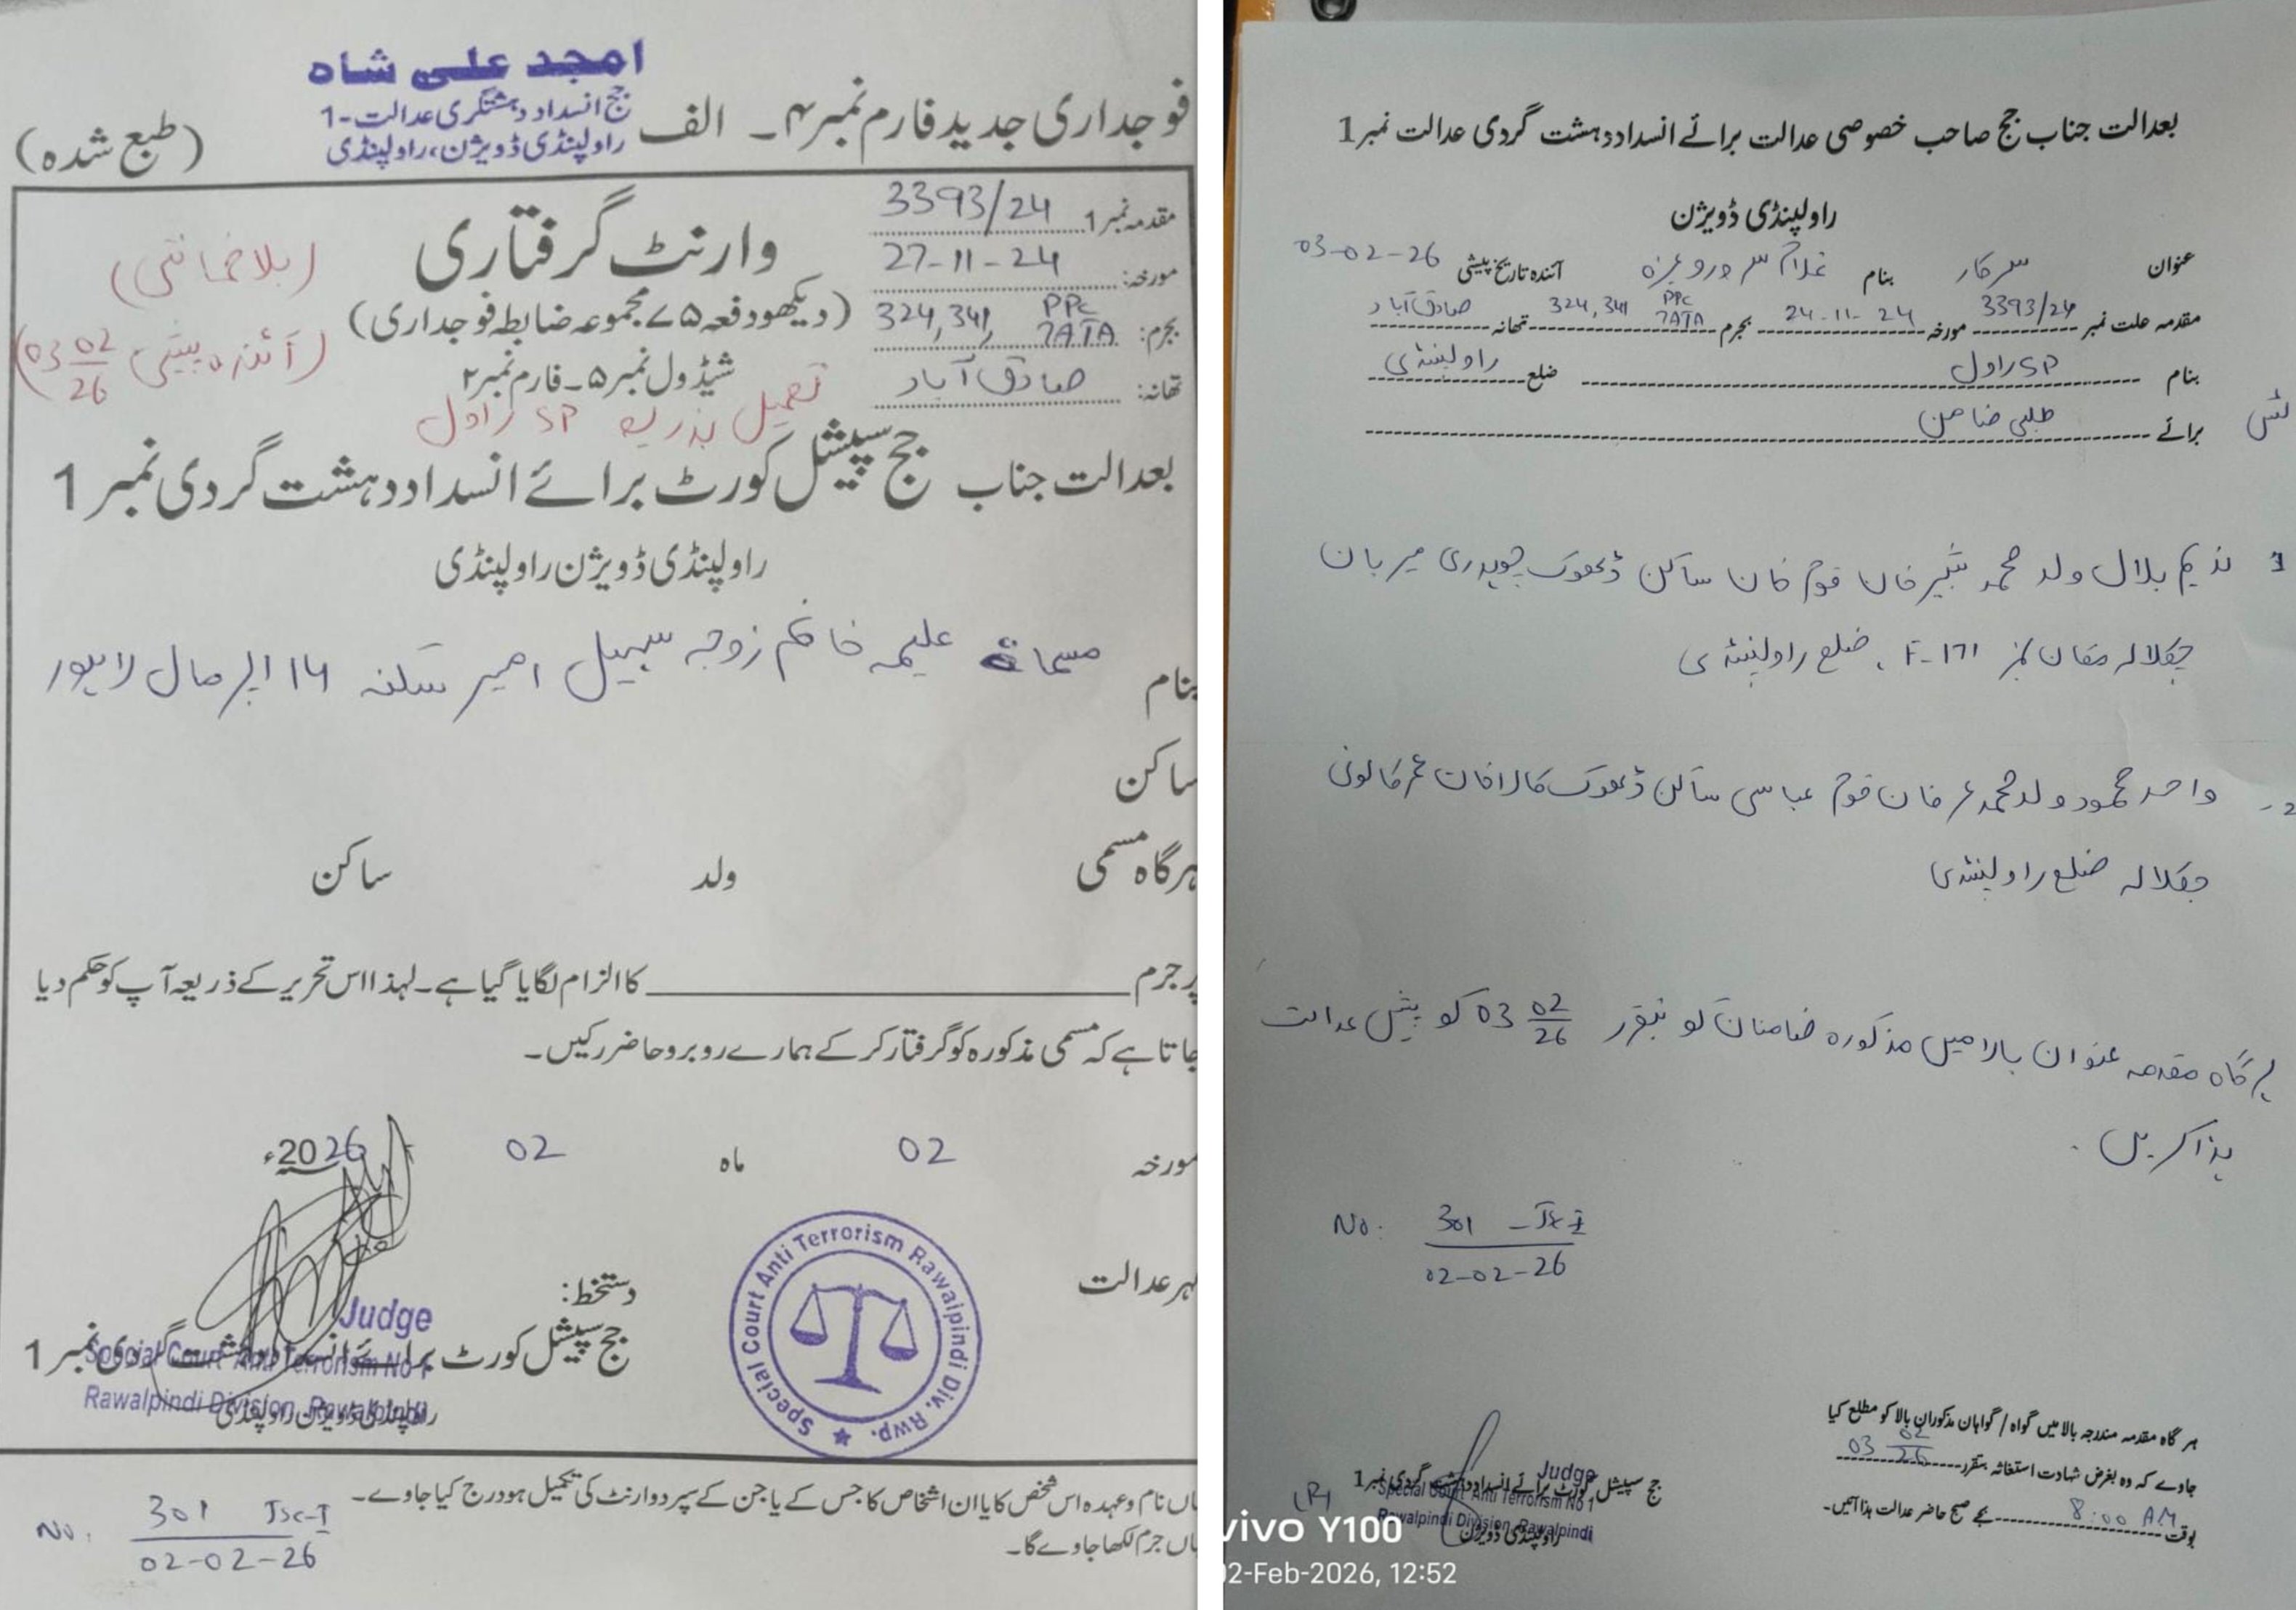 امجد علی شاہ
جج انسداد دہشتگری عدالت-1
راولپنڈی ڈویژن، راولپنڈی
فوجداری جدید فارم نمبر ۴۔ الف
(طبع شدہ)
مقدمہ نمبر 1 3393/24
مورخہ: 27-11-24
بجرم: 324, 341, PPC 7ATA
تھانہ: صادق آباد
وارنٹ گرفتاری
(بلا ضمانتی)
(دیکھو دفعہ ۷۵ مجموعہ ضابطہ فوجداری)
(آئندہ پیشی 03 02/26)
شیڈول نمبر ۵۔ فارم نمبر ۲
تعمیل بذریعہ SP راول
بعدالت جناب جج سپیشل کورٹ برائے انسداد دہشت گردی نمبر 1
راولپنڈی ڈویژن راولپنڈی
بنام مسماۃ علیمہ خانم زوجہ سہیل امیر سکنہ 14 اپر مال لاہور
ساکن
ہرگاہ مسمی ولد ساکن
پر جرم کا الزام لگایا گیا ہے۔ لہذا اس تحریر کے ذریعہ آپ کو حکم دیا
جاتا ہے کہ مسمی مذکورہ کو گرفتار کر کے ہمارے روبرو حاضر رکیں۔
مورخہ 02 ماہ 02 2026ء
مہر عدالت
Special Court Anti Terrorism Rawalpindi Div. Rwp.
دستخط:
جج سپیشل کورٹ برائے انسداد دہشت گردی نمبر 1
راولپنڈی ڈویژن راولپنڈی
Judge
Special Court Anti Terrorism No 1
Rawalpindi Division Rawalpindi
یہاں نام و عہدہ اس شخص کا یا ان اشخاص کا جس کے یا جن کے سپرد وارنٹ کی تکمیل ہو درج کیا جاوے۔
یہاں جرم لکھا جاوے گا۔
No. 301 JSC-I
02-02-26
بعدالت جناب جج صاحب خصوصی عدالت برائے انسداد دہشت گردی عدالت نمبر 1
راولپنڈی ڈویژن
عنوان سرکار بنام غلام سرور وغیرہ آئندہ تاریخ پیشی 03-02-26
مقدمہ علت نمبر 3393/24 مورخہ 24-11-24 بجرم 324, 341 PPC 7ATA تھانہ صادق آباد
بنام SP راول ضلع راولپنڈی
برائے طلبی ضامن
1 ندیم بلال ولد محمد شبیر خان قوم خان ساکن ڈھوک چوہدری میربان
چکلالہ مکان نمبر F-171، ضلع راولپنڈی
2- واحد محمود ولد محمد عرفان قوم عباسی ساکن ڈھوک کالا خان عمر کالونی
چکلالہ ضلع راولپنڈی
ہرگاہ مقدمہ عنوان بالا میں مذکورہ ضامنان کو بتقرر 03 02/26 کو پیش عدالت
ہذا کریں.
No. 301 -JSC-I
02-02-26
ہر گاہ مقدمہ مندرجہ بالا میں گواہ/گواہان مذکوران بالا کو مطلع کیا
جاوے کہ وہ بغرض شہادت استغاثہ بتقرر 03 02/26
بوقت 8:00 AM بجے صبح حاضر عدالت ہذا آئیں۔
جج سپیشل کورٹ برائے انسداد دہشت گردی نمبر 1
راولپنڈی ڈویژن
Judge
Special Court Anti Terrorism No 1
Rawalpindi Division Rawalpindi
vivo Y100
02-Feb-2026, 12:52